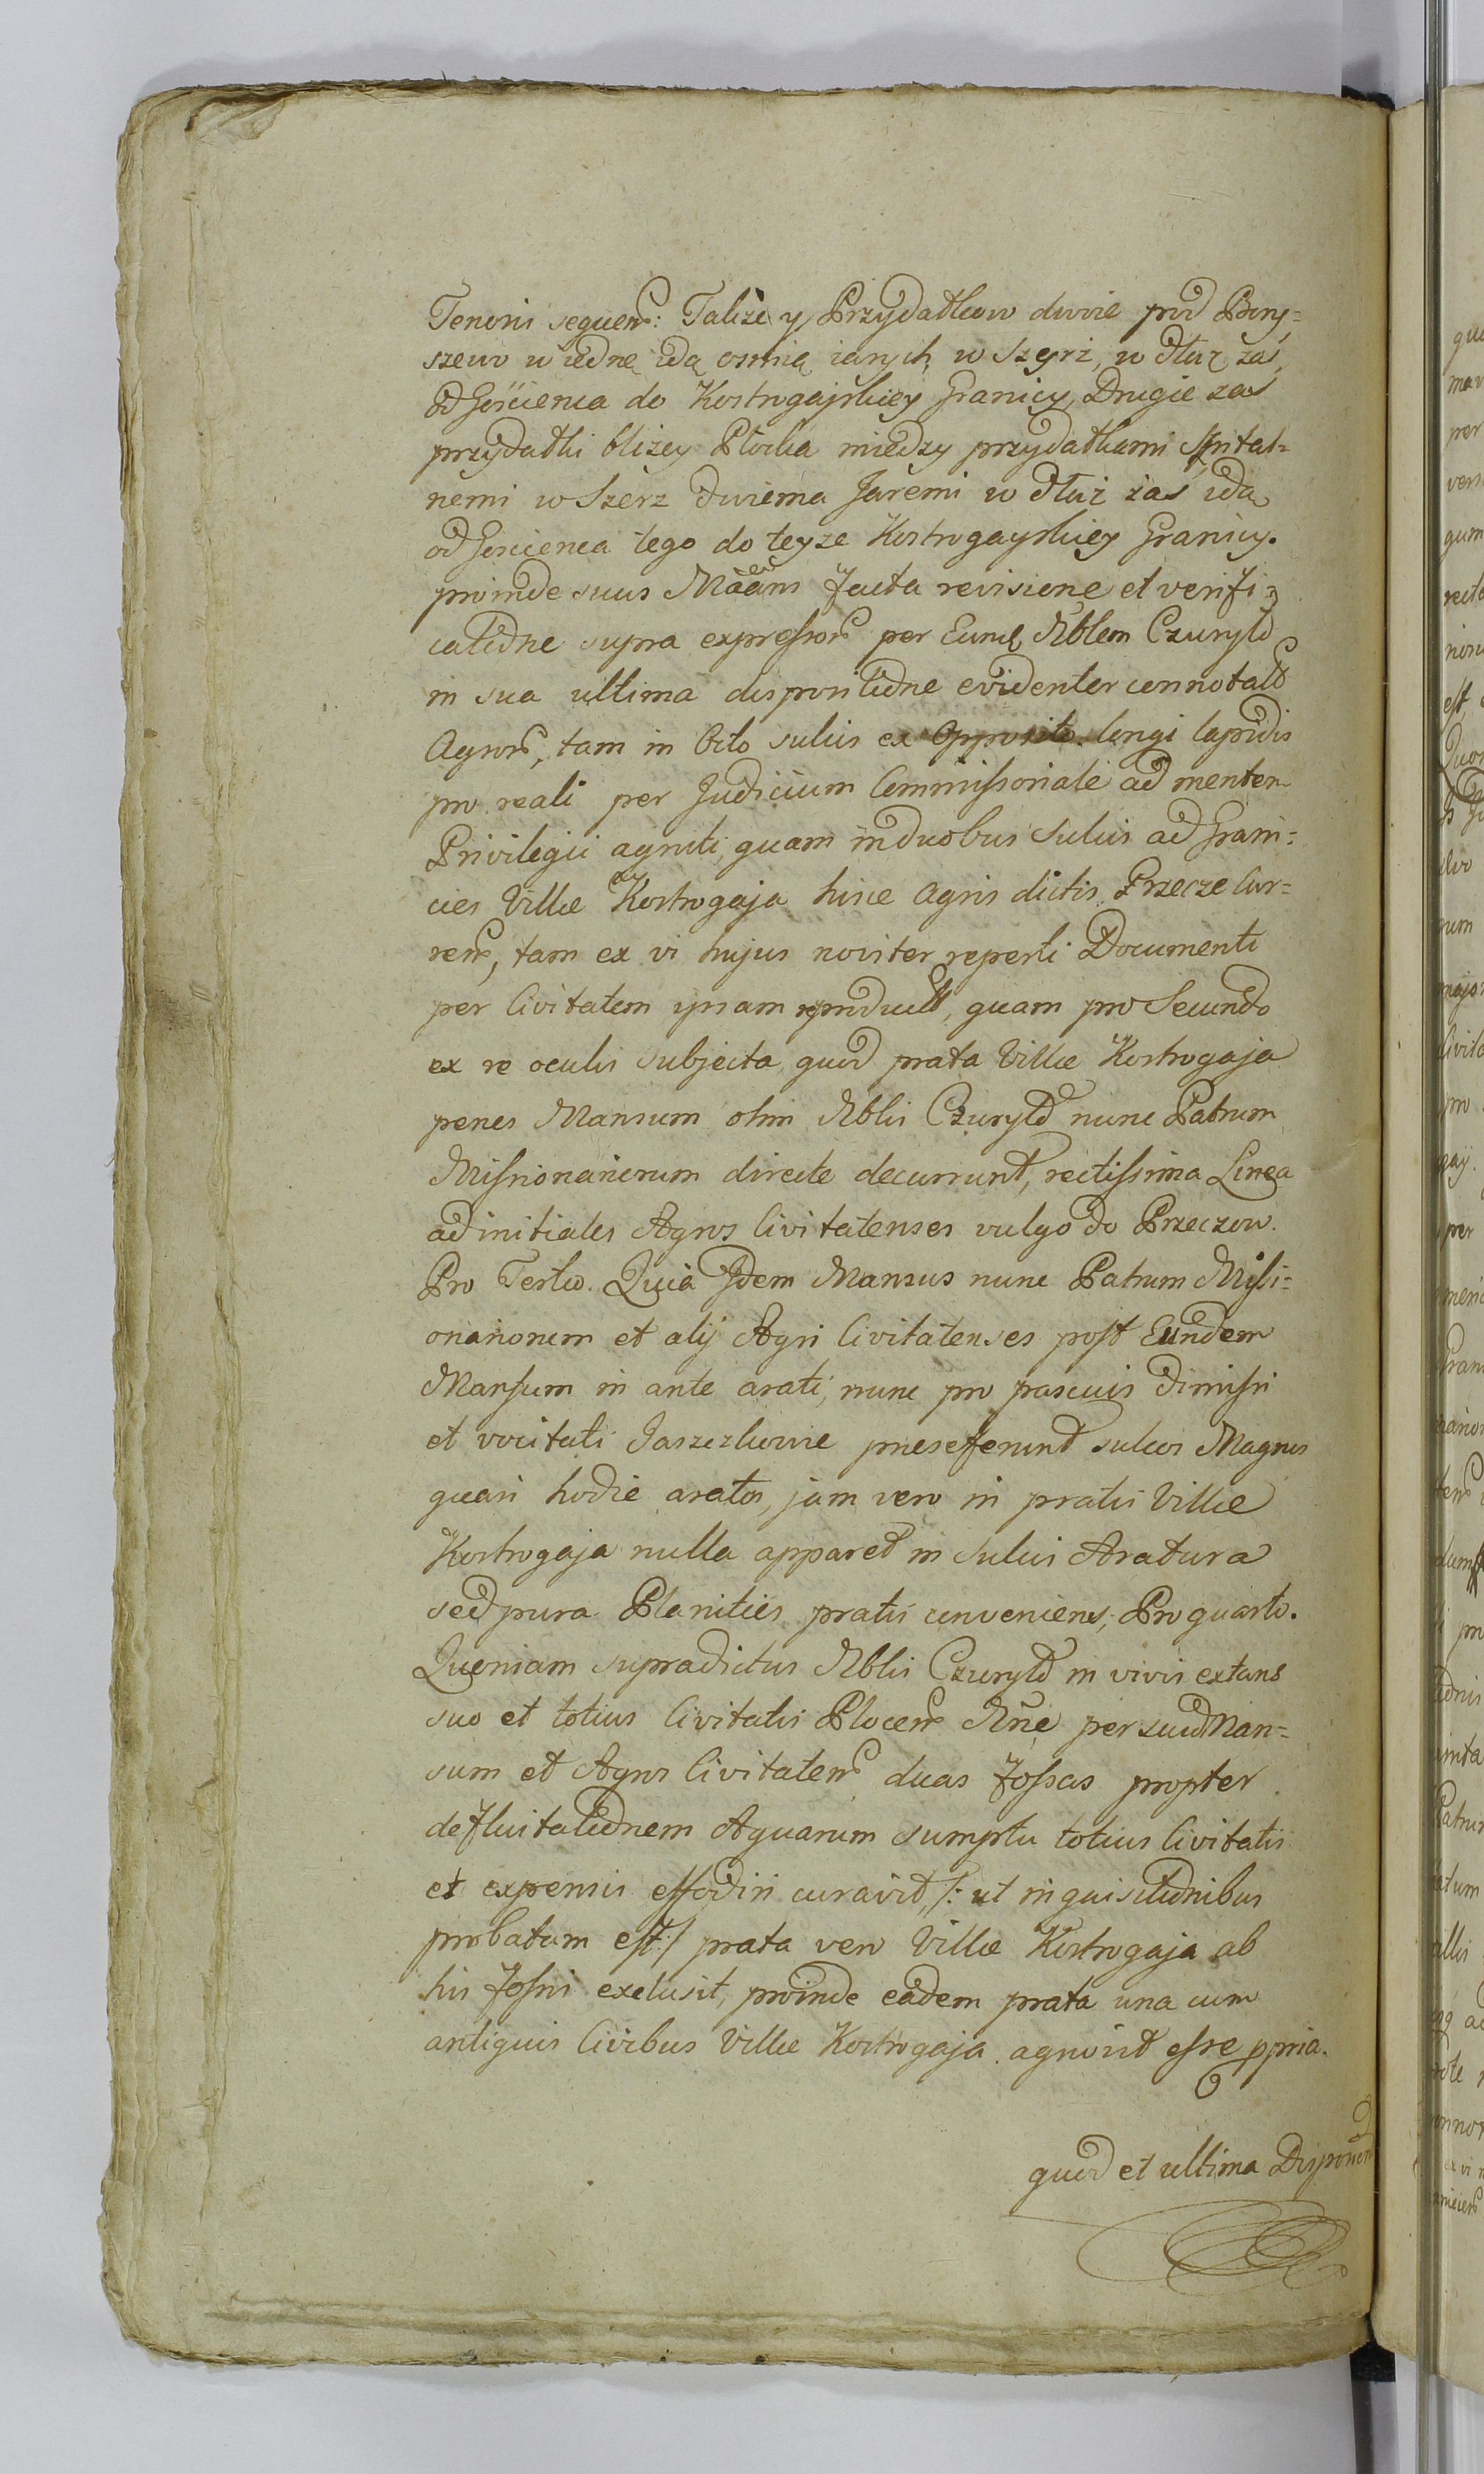 Tenoris sequen: Takze y Przydatkow dwoie pod Bory=
szewo w iedne idą osmią iarych w Szerz, w dłuż zaś
od Gościenca do Kostrogajskiey Granicy, Drugie zaś
przydatki bliżey Płocka miedzy przydatkami Spital=
nemi w Szerz dwiema Jaremi w dłuż zaś ida
od Goscienca tego do teyze Kostrogayskiey Granicy.
proinde suus facta revisione et verifi=
catione supra expressor per Eund Nblem Czuryło
in sua ultima dispositione evidenter connotat
Agror, tam in Octo sulcis ex Opposito longi lapidis
pro reali per Judicium Commissoriale ad mentem
Privilegii agniti, quam in duobus Sulcis ad Grani=
cies Villæ Kostrogaja hinc Agris dictis Przecze Cur=
ren, tam ex vi hujus noviter reperti Documenti
per Civitatem ipsam product, quam pro Secundo
ex re oculis subjecta, quod prata Villæ Kostrogaja
penes Mansum olim Nblis Czuryło nunc Patrum
Missionariorum directe decurrunt, rectissima Linea
ad initiales Agros Civitatenses vulgo do Przeczow.
Pro Tertio. Quia Idem Mansus nunc Patrum Missi=
onariorum et alij Agri Civitatenses post Eundem
Mansum in ante arati, nunc pro pascuis dimissi
et vocitati præseferunt sulcos Magnos
quasi hodie aratos, jam vero in pratis Villæ
Kostrogaja nulla apparet in sulcis Aratura
sed pura Planities pratis conveniens; Pro quarto.
Quoniam supradictus Nblis Czuryło in vivis extans
suo et totius Civitatis Plocen Nñe per suum Man=
sum et Agros Civitaten duas fossas propter
defluitationem Aquarum sumptu totius Civitatis
et expensis effodiri curavit, /: ut inquisitionibus
probatum est :/ prata vero Villæ Kostrogaja ab
his fossis exclusit, proinde eadem prata una cum
antiquis Civibus Villæ Kostrogaja agnovit esse ppria.
quod et ultima